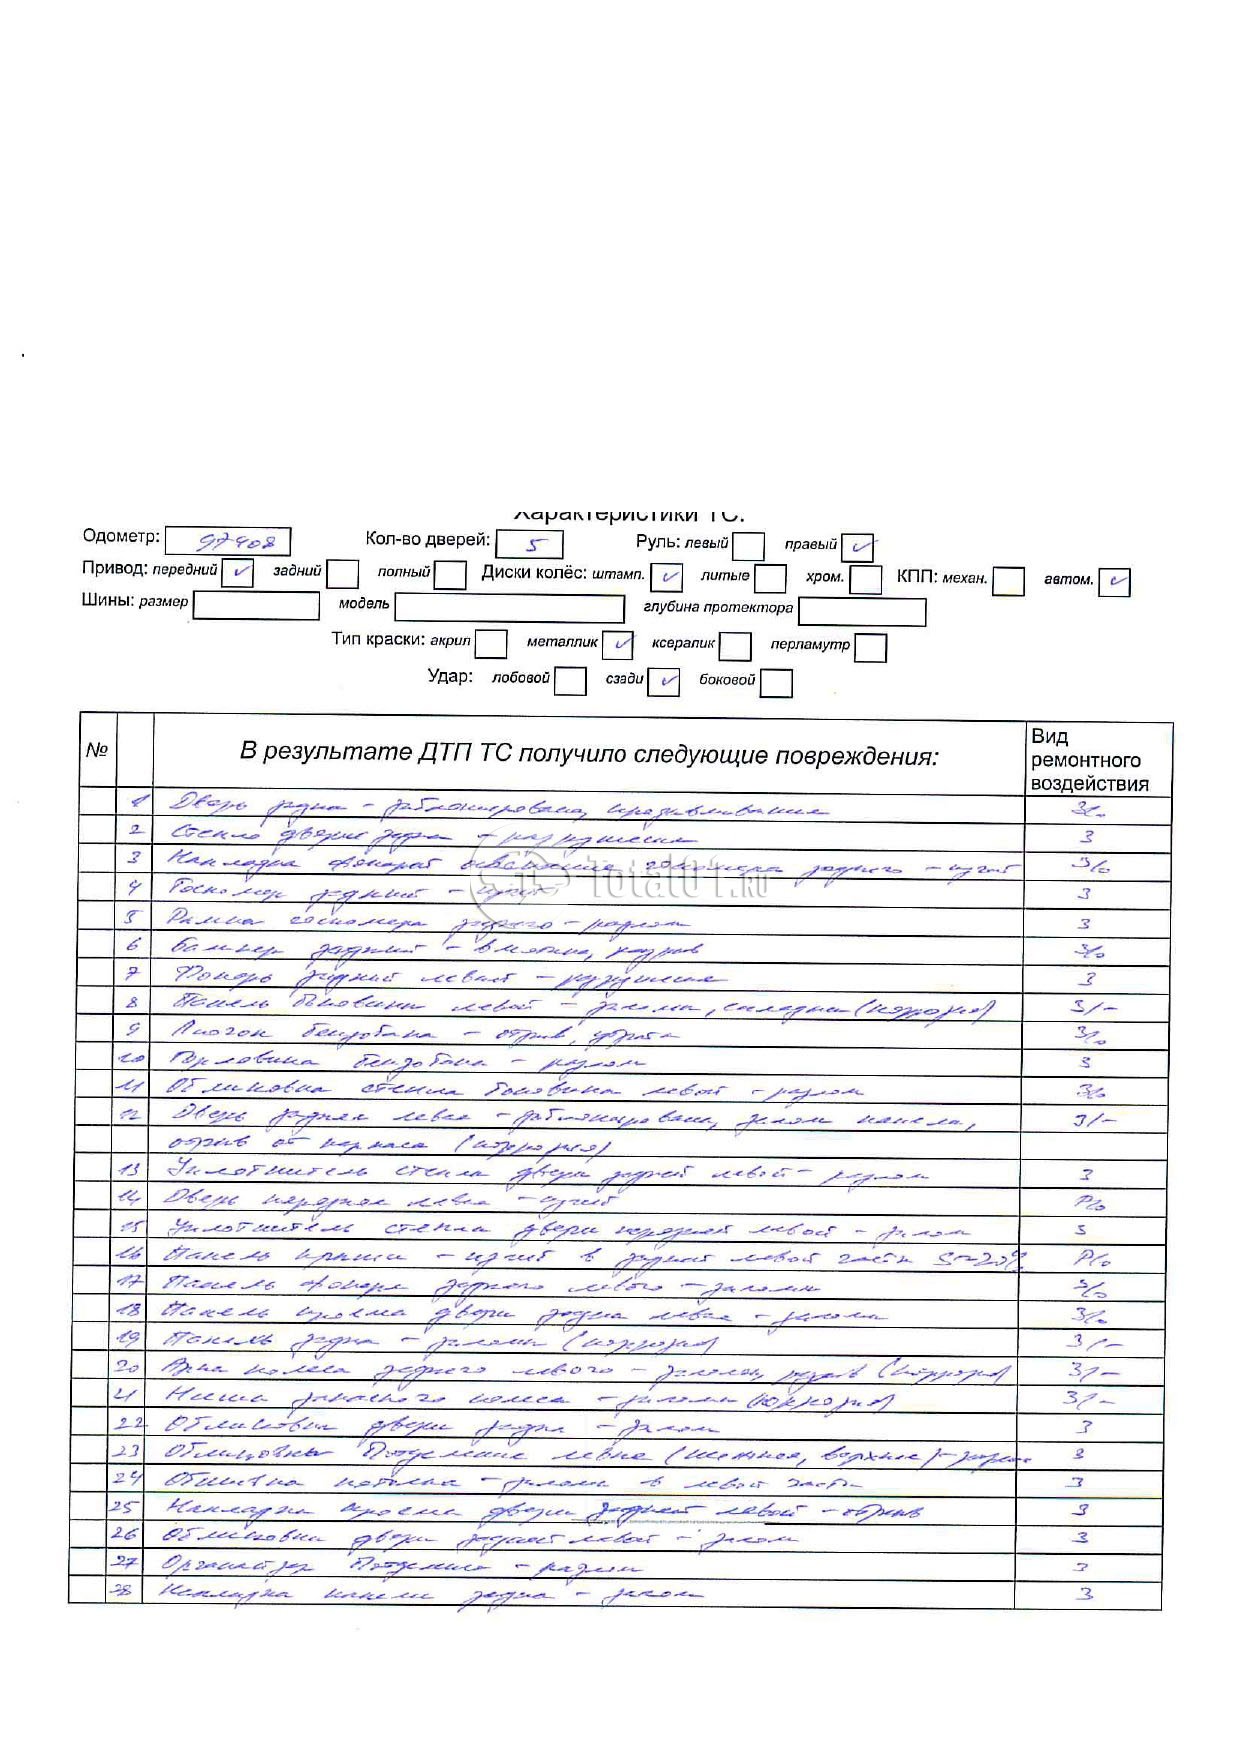 Характеристики ТС:
Одометр: 97408 Кол-во дверей: 5 Руль: левый правый ✓
Привод: передний ✓ задний полный Диски колёс: штамп. ✓ литые хром. КПП: механ. автом. ✓
Шины: размер модель глубина протектора
Тип краски: акрил металлик ✓ ксералик перламутр
Удар: лобовой сзади ✓ боковой
№ В результате ДТП ТС получило следующие повреждения: Вид ремонтного воздействия
1 Дверь задка - заблокирована, З/о
2 Стекло двери задка - разрушена З
3 Накладка фонарей освещение госномера заднего - изгиб З/о
4 Госномер задний - изгиб З
5 Рамка госномера заднего - разлом З
6 Бампер задний - вмятина, разрыв З/о
7 Фонарь задний левый - разрушена З
8 Панель боковины левой - заломы, складки (коррозия) З/-
9 Лючок бензобака - отрыв, утрата З/о
10 Горловина бензобака - разлом З
11 Облицовка стекла боковина левой - разлом З/о
12 Дверь задняя левая - заблокирована, залом панели, З/-
отрыв от каркаса (коррозия)
13 Уплотнитель стекла двери задней левой - разлом З
14 Дверь передняя левая - изгиб Р/о
15 Уплотнитель стекла двери передней левой - залом З
16 Панель крыши - изгиб в задней левой части S~20% Р/о
17 Панель фонаря заднего левого - заломы З/о
18 Панель проема двери задка левая - заломы З/о
19 Панель задка - заломы (коррозия) З/-
20 Арка колеса заднего левого - заломы, разрыв (коррозия) З/-
21 Ниша запасного колеса - заломы (коррозия) З/-
22 Облицовка двери задка - залом З
23 Облицовки багажника левые (нижняя, верхние) - З
24 Обшивка потолка - заломы в левой части З
25 Накладка проема двери задней левой - обрыв З
26 Облицовка двери задней левой - залом З
27 Органайзер багажника - разлом З
28 Накладка панели задка - залом З
Total01.RU